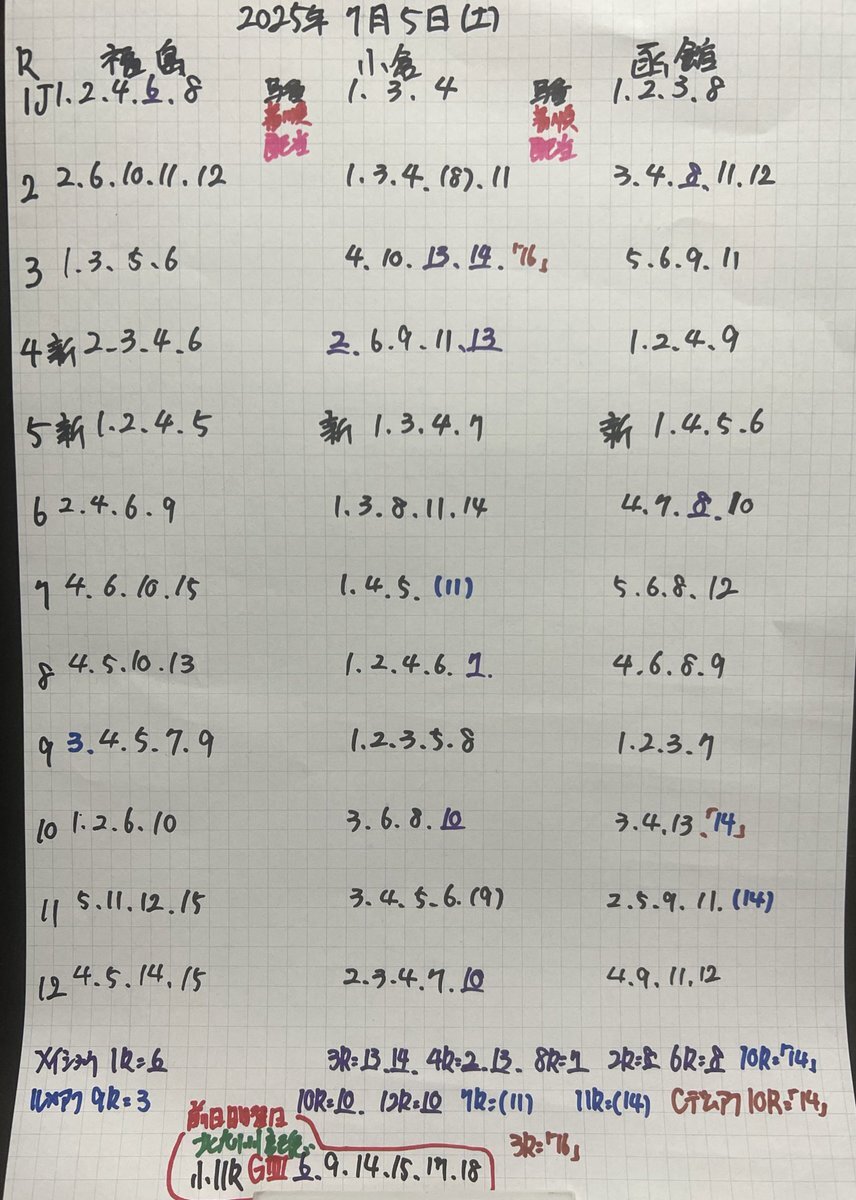 2025年 7月5日(土)
R 福島 小倉 函館
1J 1.2.4.6.8 1.3.4 1.2.3.8
着順 着順
配当 配当
2 2.6.10.11.12 1.3.4.(8).11 3.4.8.11.12
3 1.3.5.6 4.10.13.14.「16」 5.6.9.11
4新 2-3.4.6 2.6.9.11.13 1.2.4.9
5新 1.2.4.5 新 1.3.4.7 新 1.4.5.6
6 2.4.6.9 1.3.8.11.14 4.7.8.10
7 4.6.10.15 1.4.5.(11) 5.6.8.12
8 4.5.10.13 1.2.4.6.7. 4.6.8.9
9 3.4.5.7.9 1.2.3.5.8 1.2.3.7
10 1.2.6.10 3.6.8.10 3.4.13.「14」
11 5.11.12.15 3.4.5.6.(9) 2.5.9.11.(14)
12 4.5.14.15 2.3.4.7.10 4.9.11.12
メイショウ 1R=6 3R=13.14. 4R=2.13. 8R=7 2R=8 6R=8 10R=「14」
ルメアフ 9R=3 10R=10. 12R=10 7R=(11) 11R=(14) Cデムアフ 10R=「14」
前日開催日 3R=「16」
北九州記念
小11R GIII 6.9.14.15.17.18